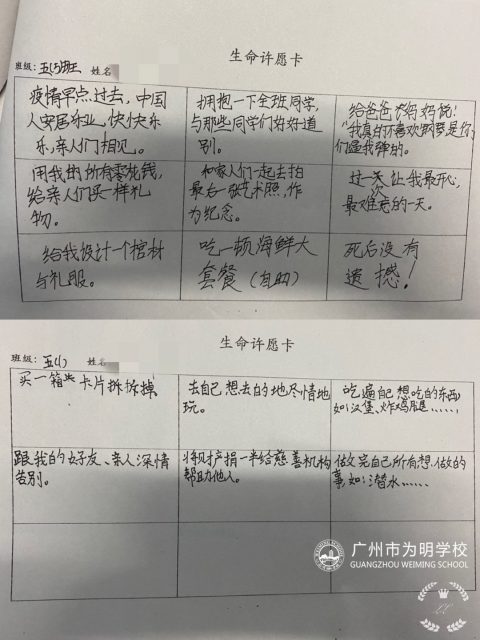 生命许愿卡
班级：五(5)班 姓名
疫情早点过去，中国
人安居乐业，快快乐
乐，亲人们相见。
拥抱一下全班同学，
与那些同学们好好道
别。
给爸爸妈妈说：
“我真的不喜欢钢琴是你
们逼我弹的。
用我的所有零花钱，
给亲人们买一样礼
物。
和家人们一起去拍
最后一张艺术照，作
为纪念。
过一次让我最开心，
最难忘的一天。
给我设计一个棺材
与礼服。
吃一顿海鲜大
套餐（自助）
死后没有
遗憾！
生命许愿卡
班级：五(1) 姓名
买一箱 卡片拆拆掉
去自己想去的地尽情地
玩。
吃遍自己想吃的东西，
如：汉堡、炸鸡腿……
跟我的好友、亲人深情
告别。
将财产捐一半给慈善机构
帮助他人。
做完自己所有想做的
事，如：潜水……
广州市为明学校
GUANGZHOU WEIMING SCHOOL